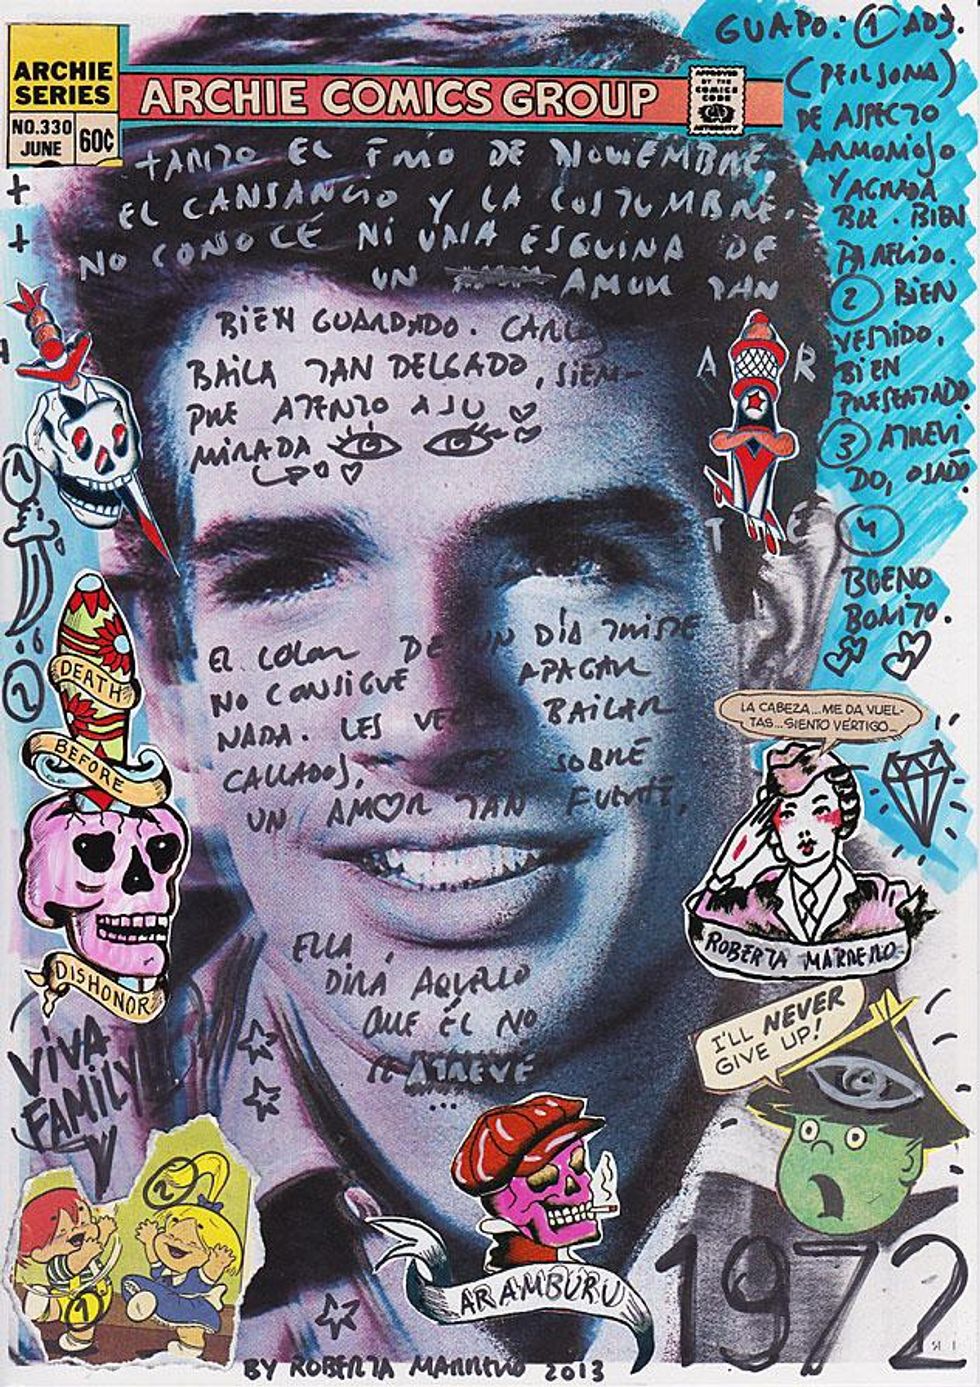 ARCHIE
SERIES
NO.330
JUNE
60¢
ARCHIE COMICS GROUP
APPROVED
BY THE
COMICS
CODE
AUTHORITY
GUAPO: 1 ADJ.
(PERSONA)
DE ASPECTO
ARMONIOSO
Y AGRADA
BLE. BIEN
PARECIDO.
2 BIEN
VESTIDO,
BIEN
PRESENTADO
3 ATREVI
DO, OSADO
4
BUENO
BONITO.
TANTO EL FRIO DE NOVIEMBRE,
EL CANSANCIO Y LA COSTUMBRE.
NO CONOCE NI UNA ESQUINA DE
UN AMOR TAN
BIEN GUARDADO. CARLOS
BAILA TAN DELGADO, SIEM-
PRE ATENTO A SU
MIRADA
A R
T E
1
2
EL COLOR DE UN DÍA TRISTE
NO CONSIGUE APAGAR
NADA. LES VEO BAILAR
CALLADOS, SOBRE
UN AMOR TAN FUERTE.
DEATH
BEFORE
DISHONOR
LA CABEZA...ME DA VUEL-
TAS...SIENTO VÉRTIGO...
ROBERTA MARRERO
ELLA
DIRÁ AQUELLO
QUE ÉL NO
SE ATREVE
...
I'LL NEVER
GIVE UP!
VIVA
FAMILY
2
1
ARAMBURU
1972
BY ROBERTA MARRERO 2013